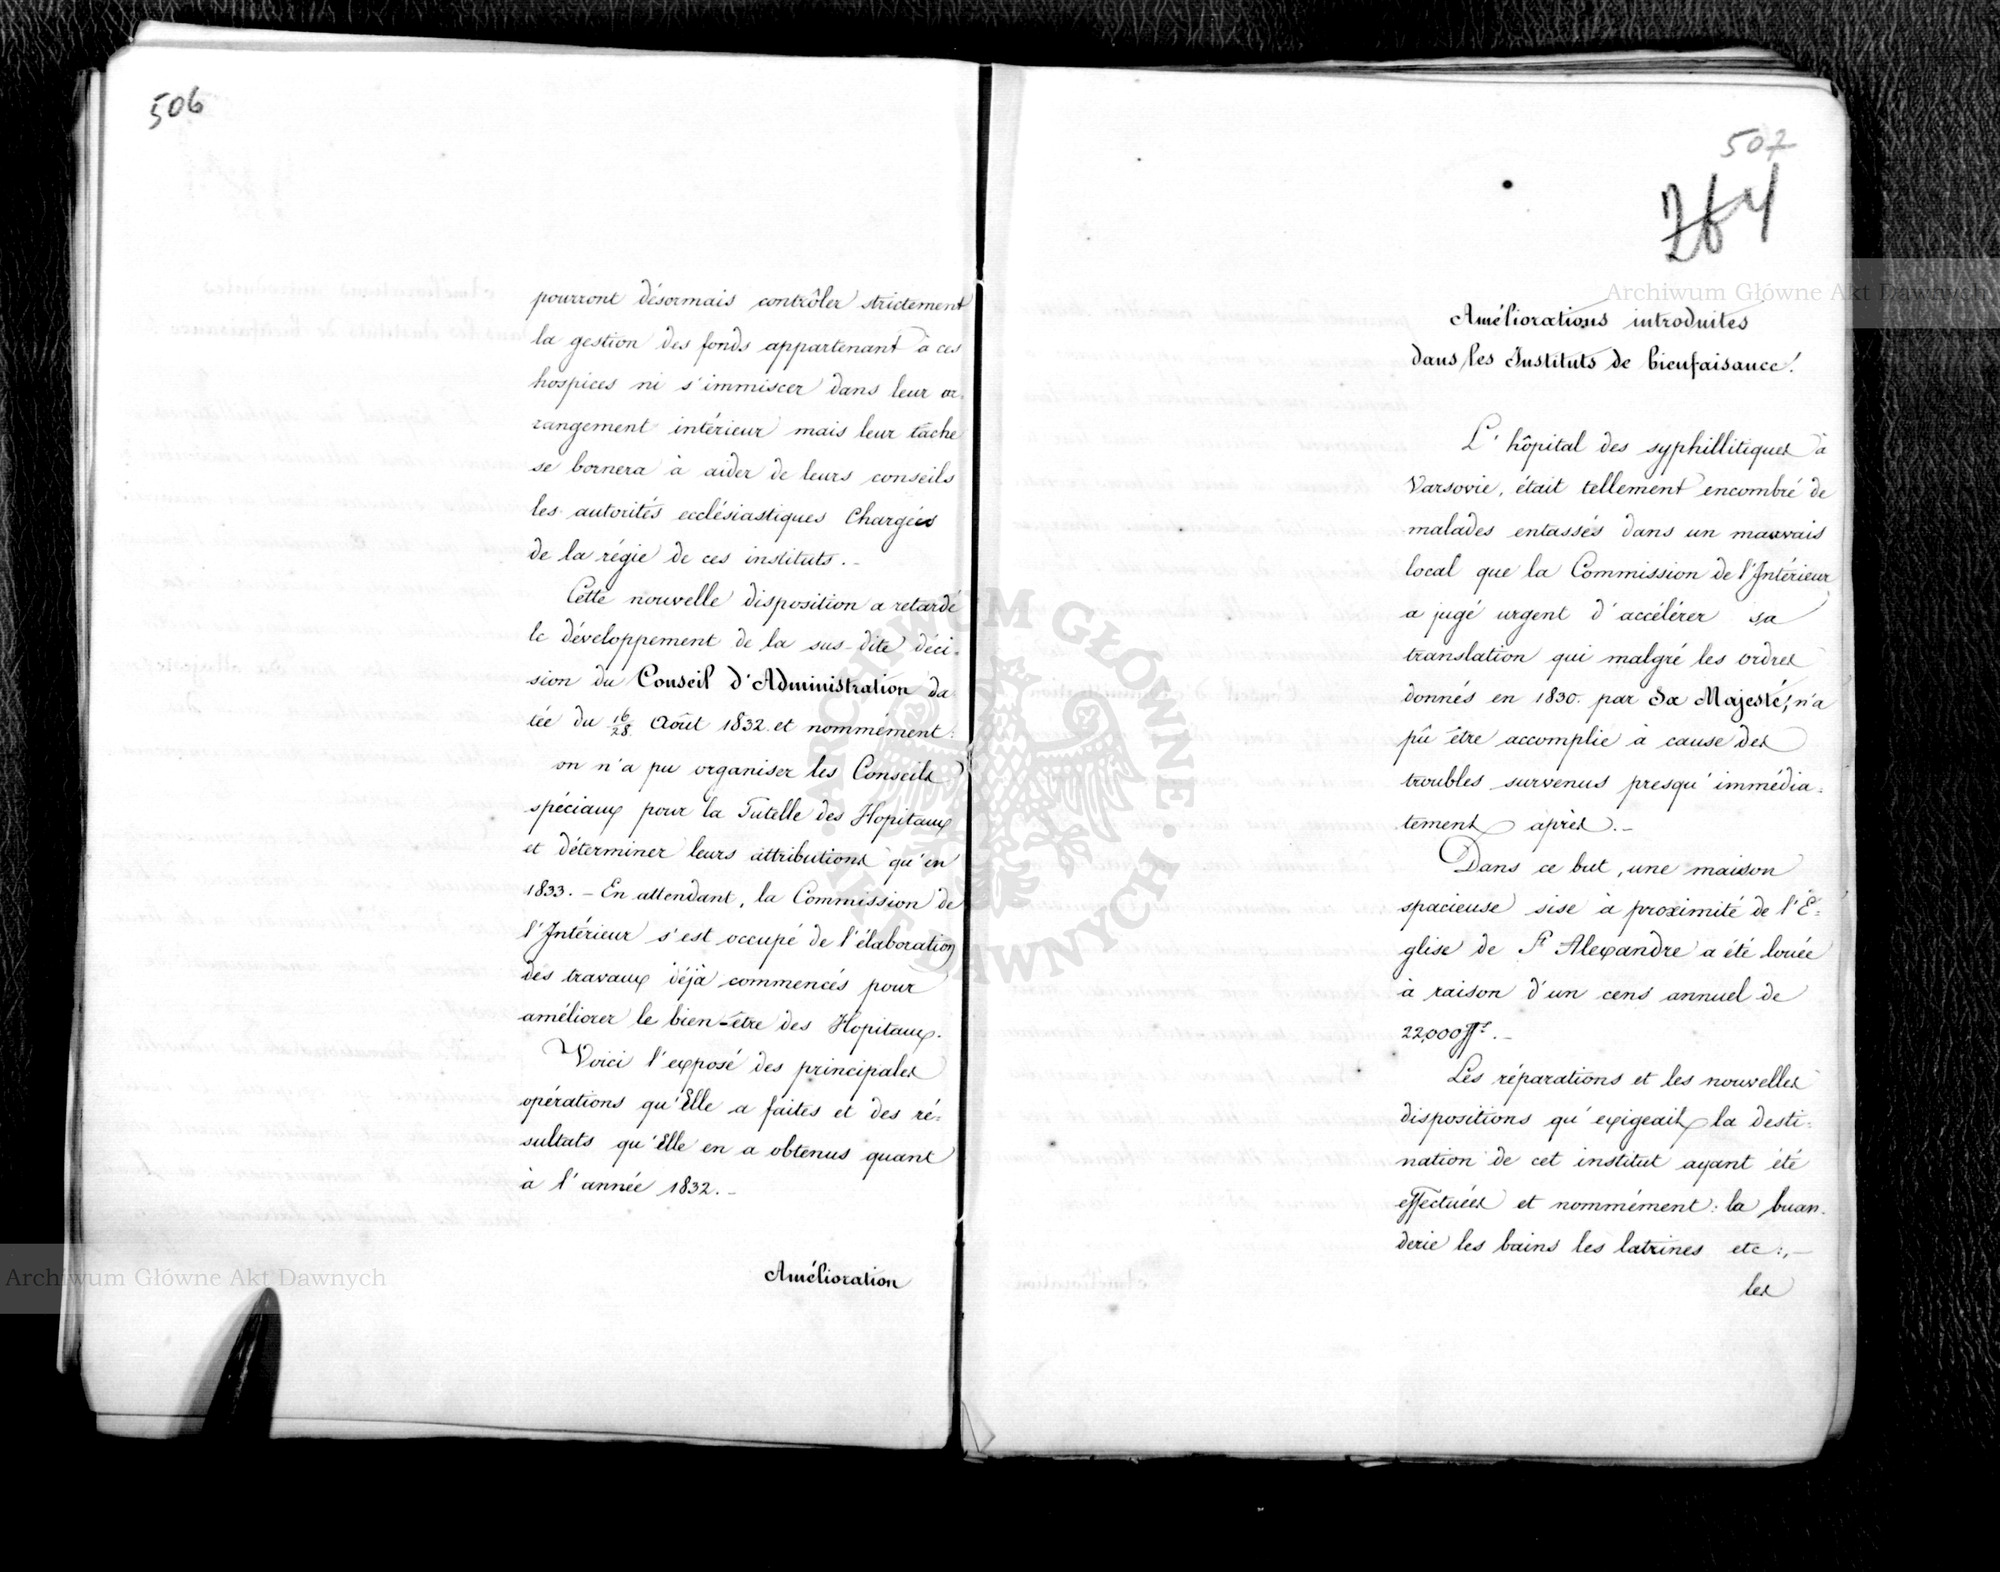 506
pourront désormais contrôler strictement
la gestion des fonds appartenant à ces
hospices ni s'immiscer dans leur ar-
rangement intérieur mais leur tâche
se bornera à aider de leurs conseils
les autorités ecclésiastiques chargées
de la régie de ces instituts.-
Cette nouvelle disposition a retardé
le développement de la sus-dite déci-
sion du Conseil d'Administration da-
tée du 16/28 Août 1832 et nommément:
on n'a pu organiser les Conseils
spéciaux pour la Tutelle des Hopitaux
et déterminer leurs attributions qu'en
1833. - En attendant, la Commission de
l'Intérieur s'est occupé de l'élaboration
des travaux déjà commencés pour
améliorer le bien-être des Hopitaux.
Voici l'exposé des principales
opérations qu'Elle a faites et des ré-
sultats qu'Elle en a obtenus quant
à l'année 1832.-
Amélioration
507
264
Améliorations introduites
dans les Instituts de bienfaisance.
L'hôpital des syphillitiques à
Varsovie, était tellement encombré de
malades entassés dans un mauvais
local que la Commission de l'Intérieur
a jugé urgent d'accélérer sa
translation qui malgré les ordres
donnés en 1830. par Sa Majesté, n'a
pû être accomplie à cause des
troubles survenus presqu'immédia-
tement après.-
Dans ce but, une maison
spacieuse sise à proximité de l'É-
glise de St Alexandre a été louée
à raison d'un cens annuel de
22,000 ff.-
Les réparations et les nouvelles
dispositions qu'exigeait la desti-
nation de cet institut ayant été
effectuées et nommément: la buan-
derie les bains les latrines etc:,-
les
Archiwum Główne Akt Dawnych
Archiwum Główne Akt Dawnych
ARCHIWUM GŁÓWNE AKT DAWNYCH